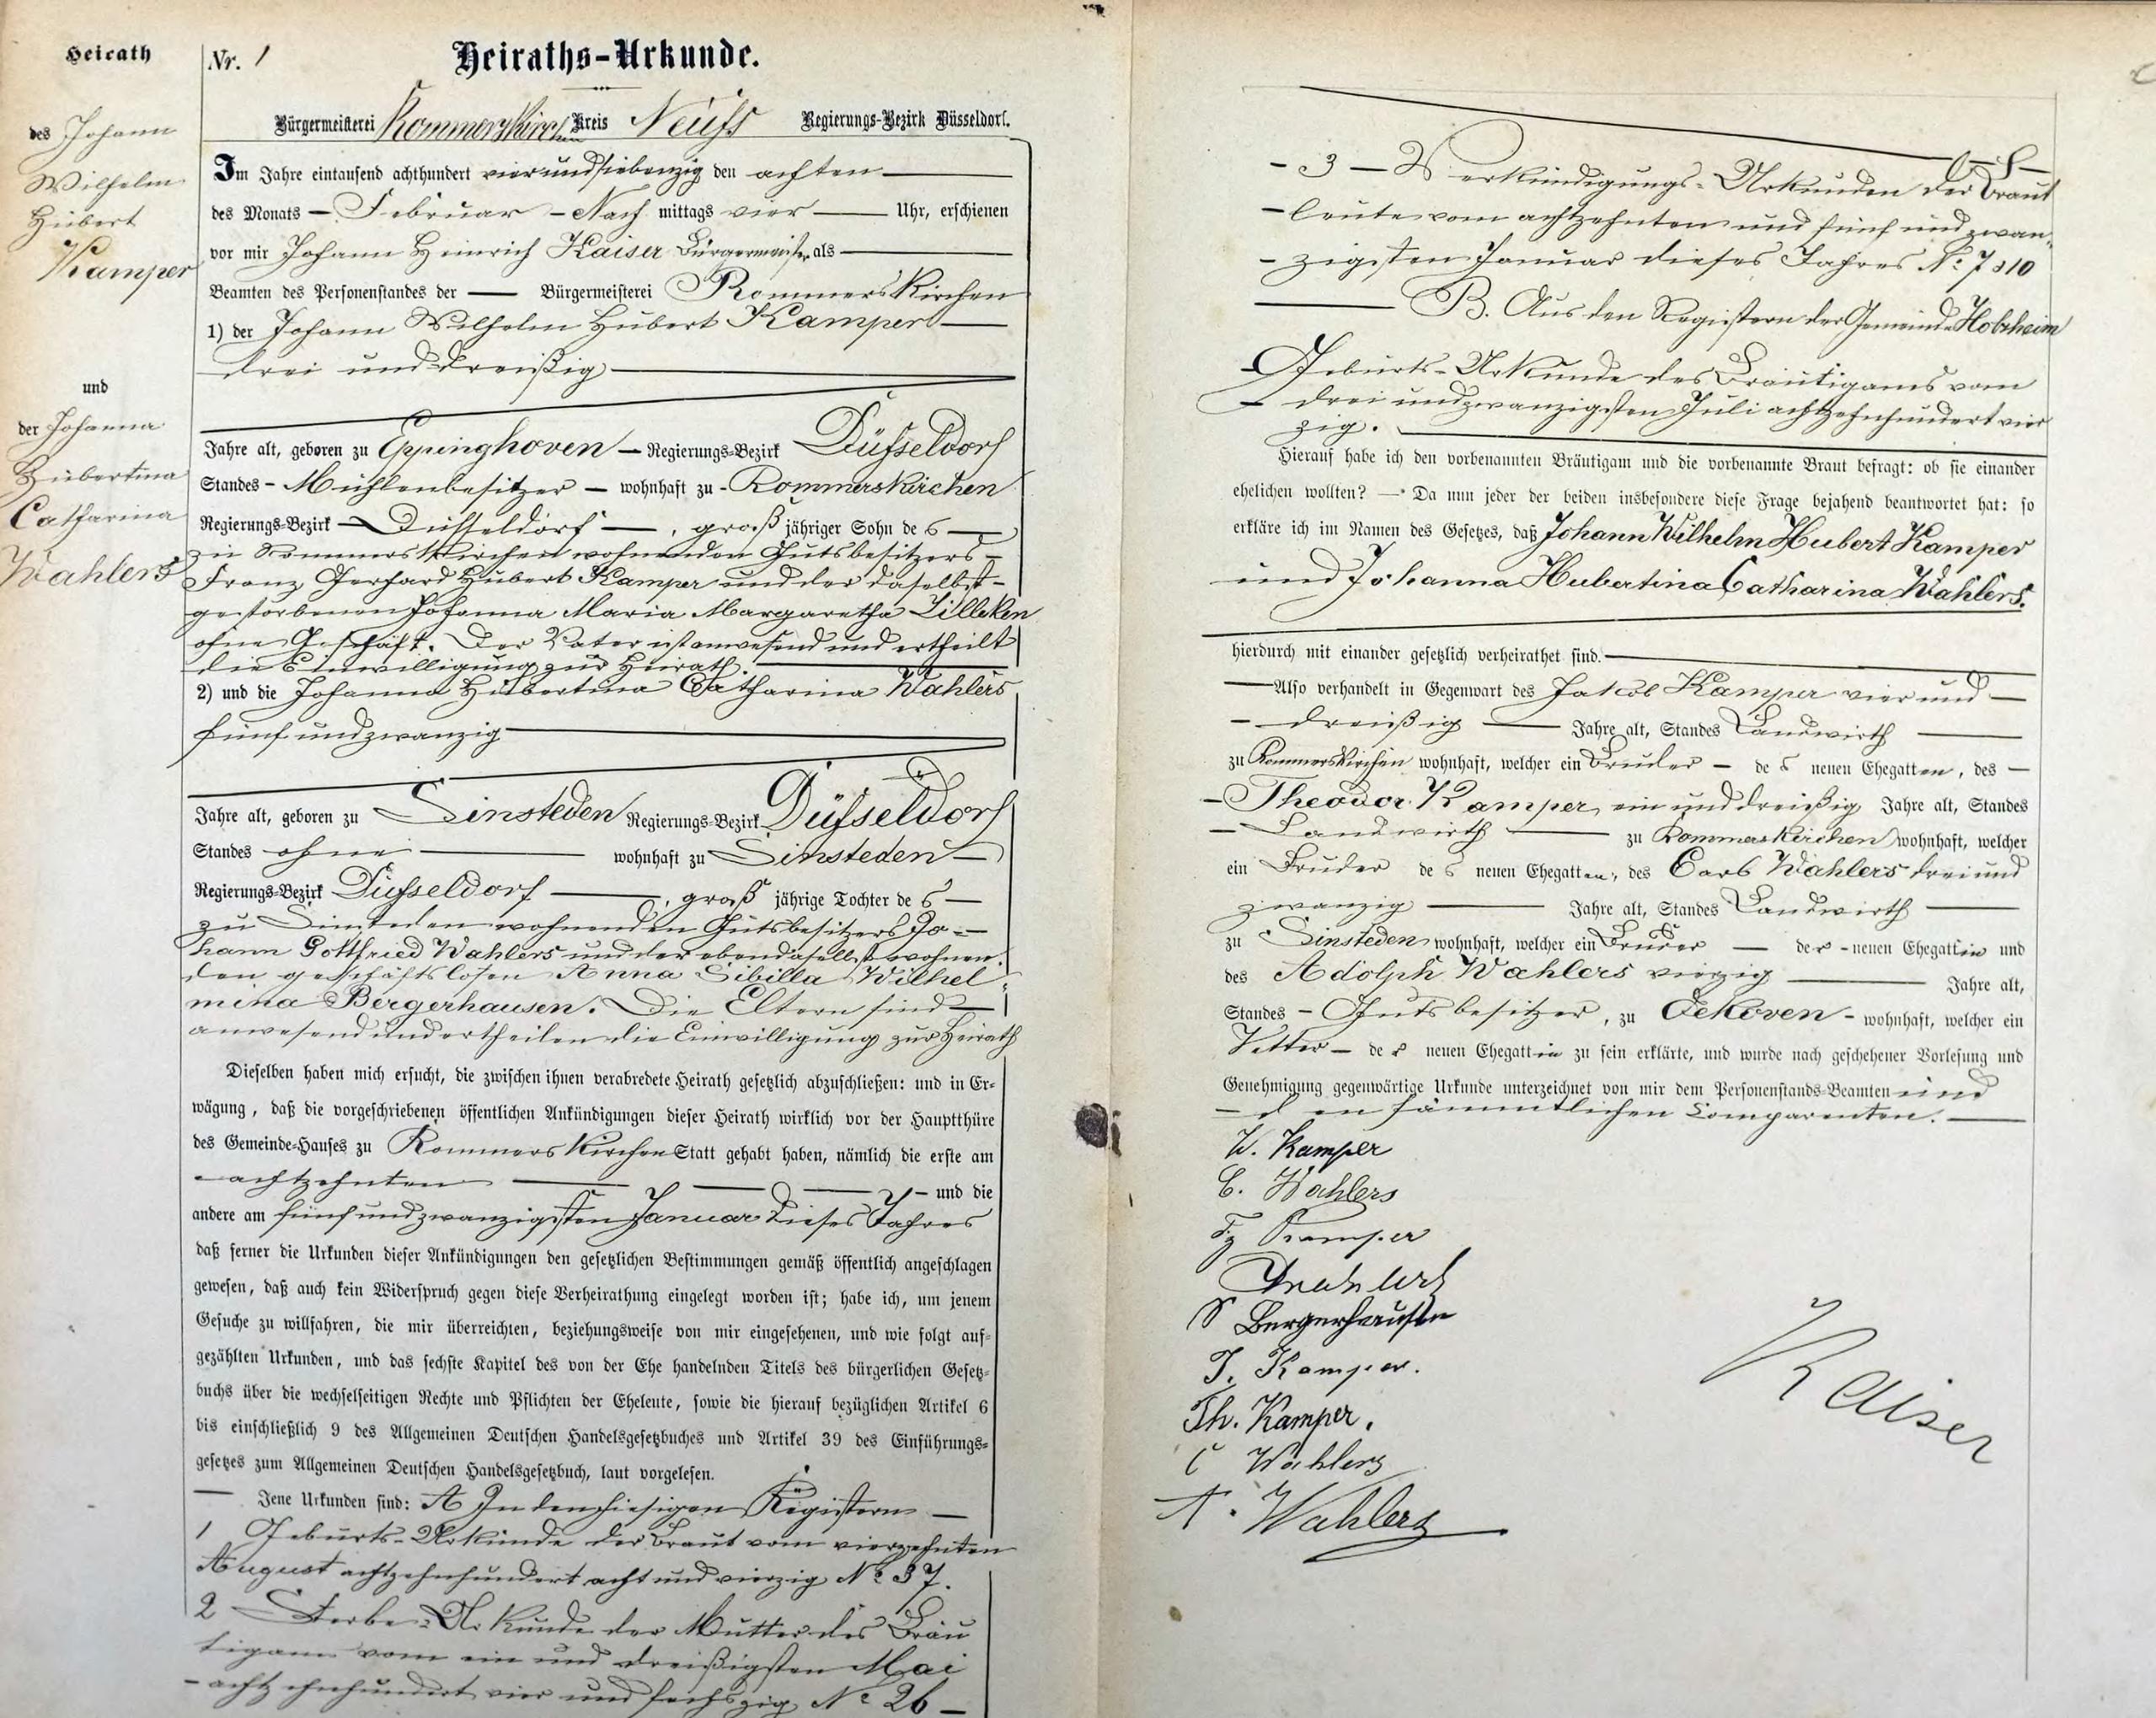 Heirath
des Johann
Wilhelm
Hubert
Kamper
und
der Johanna
Hubertina
Catharina
Wahlers
Nr. 1
Heiraths-Urkunde.
Bürgermeisterei Rommerskirchen Kreis Neuß Regierungs-Bezirk Düsseldorf.
Im Jahre eintausend achthundert vierundsiebenzig den achten
des Monats Februar Nach mittags vier Uhr, erschienen
vor mir Johann Heinrich Kaiser Bürgermeister als
Beamten des Personenstandes der Bürgermeisterei Rommerskirchen
1) der Johann Wilhelm Hubert Kamper
drei und dreißig
Jahre alt, geboren zu Eppinghoven Regierungs-Bezirk Düsseldorf
Standes Mühlenbesitzer wohnhaft zu Rommerskirchen
Regierungs-Bezirk Düsseldorf, groß jähriger Sohn des
zu Rommerskirchen wohnenden Gutsbesitzers
Franz Gerhard Hubert Kamper und der daselbst
gestorbenen Johanna Maria Margaretha Lilleken
ohne Geschäft. Der Vater ist anwesend und ertheilt
die Einwilligung zur Heirath.
2) und die Johanna Hubertina Catharina Wahlers
fünf und zwanzig
Jahre alt, geboren zu Sinsteden Regierungs-Bezirk Düsseldorf
Standes ohne wohnhaft zu Sinsteden
Regierungs-Bezirk Düsseldorf, groß jährige Tochter des
zu Sinsteden wohnenden Gutsbesitzers Jo-
hann Gottfried Wahlers und der ebendaselbst wohnen-
den geschäftslosen Anna Sibilla Wilhel-
mina Bergerhausen. Die Eltern sind
anwesend und ertheilen die Einwilligung zur Heirath
Dieselben haben mich ersucht, die zwischen ihnen verabredete Heirath gesetzlich abzuschließen: und in Er-
wägung, daß die vorgeschriebenen öffentlichen Ankündigungen dieser Heirath wirklich vor der Hauptthüre
des Gemeinde-Hauses zu Rommerskirchen Statt gehabt haben, nämlich die erste am
achtzehnten und die
andere am fünfundzwanzigsten Januar dieses Jahres
daß ferner die Urkunden dieser Ankündigungen den gesetzlichen Bestimmungen gemäß öffentlich angeschlagen
gewesen, daß auch kein Widerspruch gegen diese Verheirathung eingelegt worden ist; habe ich, um jenem
Gesuche zu willfahren, die mir überreichten, beziehungsweise von mir eingesehenen, und wie folgt auf-
gezählten Urkunden, und das sechste Kapitel des von der Ehe handelnden Titels des bürgerlichen Gesetz-
buchs über die wechselseitigen Rechte und Pflichten der Eheleute, sowie die hierauf bezüglichen Artikel 6
bis einschließlich 9 des Allgemeinen Deutschen Handelsgesetzbuches und Artikel 39 des Einführungs-
gesetzes zum Allgemeinen Deutschen Handelsgesetzbuch, laut vorgelesen.
Jene Urkunden sind: A In den hiesigen Registern
1 Geburts-Urkunde der Braut vom vierzehnten
August achtzehnhundert acht und vierzig No 37.
2 Sterbe-Urkunde der Mutter des Bräu
tigams vom ein und dreißigsten Mai
achtzehnhundert vier und sechszig No 26
3 Verkündigungs-Urkunden der Braut
leute vom achtzehnten und fünf und zwan-
zigsten Januar dieses Jahres No 7 & 10
B. Aus den Registern der Gemeinde Holzheim
Geburts-Urkunde des Bräutigams vom
drei und zwanzigsten Juli achtzehnhundert vier
zig.
Hierauf habe ich den vorbenannten Bräutigam und die vorbenannte Braut befragt: ob sie einander
ehelichen wollten? — Da nun jeder der beiden insbesondere diese Frage bejahend beantwortet hat: so
erkläre ich im Namen des Gesetzes, daß Johann Wilhelm Hubert Kamper
und Johanna Hubertina Catharina Wahlers.
hierdurch mit einander gesetzlich verheirathet sind.
Also verhandelt in Gegenwart des Jakob Kamper vier und
dreißig Jahre alt, Standes Landwirth
zu Rommerskirchen wohnhaft, welcher ein Bruder des neuen Ehegatten, des
Theodor Kamper, ein und dreißig Jahre alt, Standes
Landwirth zu Rommerskirchen wohnhaft, welcher
ein Bruder des neuen Ehegatten, des Carl Wahlers drei und
zwanzig Jahre alt, Standes Landwirth
zu Sinsteden wohnhaft, welcher ein Bruder der neuen Ehegattin und
des Adolph Wahlers vierzig Jahre alt,
Standes Gutsbesitzer, zu Oekoven wohnhaft, welcher ein
Vetter der neuen Ehegattin zu sein erklärte, und wurde nach geschehener Vorlesung und
Genehmigung gegenwärtige Urkunde unterzeichnet von mir dem Personenstands-Beamten und
den sämmtlichen Comparenten.
W. Kamper
C. Wahlers
Fz Kamper
S Bergerhausen
J. Kamper.
Th. Kamper.
C Wahlers
A. Wahlers
Kaiser